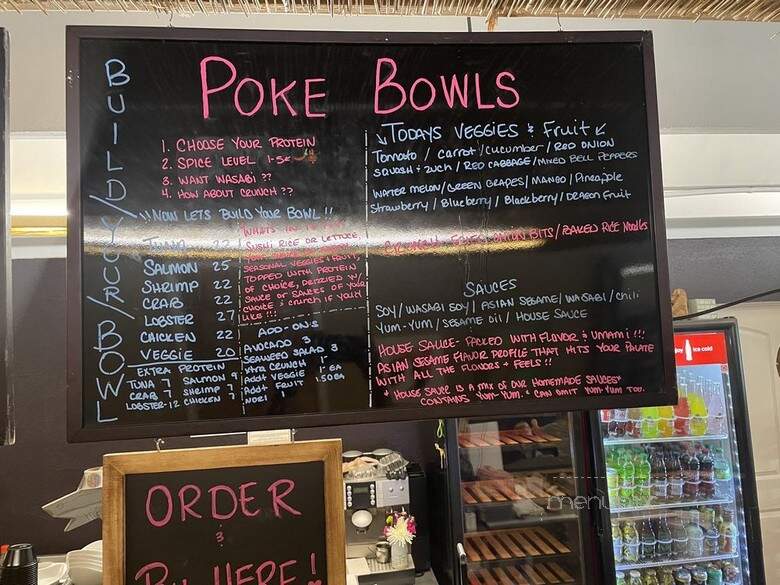 POKE BOWLS
BUILD/YOUR/BOWL
1. CHOOSE YOUR PROTEIN
2. SPICE LEVEL 1-5
3. WANT WASABI ??
4. HOW ABOUT CRUNCH ??
!! NOW LETS BUILD YOUR BOWL !!
TUNA 22
SALMON 25
SHRIMP 22
CRAB 22
LOBSTER 27
CHICKEN 22
VEGGIE 20
EXTRA PROTEIN
TUNA 9 SALMON 9
CRAB 7 SHRIMP 7
LOBSTER-12 CHICKEN 7
WHATS IN
SUSHI RICE OR LETTUCE,
SEASONAL VEGGIES & FRUIT,
TOPPED WITH PROTEIN
OF CHOICE, DRIZZLED W/
SAUCE OR SAUCES OF YOUR
CHOICE & CRUNCH IF YOU'D
LIKE !!!
ADD-ONS
AVOCADO 3
SEAWEED SALAD 3
XTRA CRUNCH 1
ADDT VEGGIE 1 EA
ADDT FRUIT 1.50 EA
NORI 1
↘ TODAYS VEGGIES & FRUIT ↙
TOMATO / CARROT / CUCUMBER / RED ONION
SQUASH & ZUCH / RED CABBAGE / MIXED BELL PEPPERS
WATER MELON / GREEN GRAPES / MANGO / PINEAPPLE
STRAWBERRY / BLUEBERRY / BLACKBERRY / DRAGON FRUIT
CRUNCH - FRIED ONION BITS / BAKED RICE NOODLES
SAUCES
SOY / WASABI SOY / ASIAN SESAME / WASABI / CHILI
YUM-YUM / SESAME OIL / HOUSE SAUCE
HOUSE SAUCE - PACKED WITH FLAVOR & UMAMI !!!
ASIAN SESAME FLAVOR PROFILE THAT HITS YOUR PALATE
WITH ALL THE FLAVORS & FEELS !!
* HOUSE SAUCE IS A MIX OF OUR HOMEMADE SAUCES*
CONTAINS YUM-YUM. * CAN OMIT YUM-YUM TOO.
ice cold
menu
ORDER
&
PAY HERE!